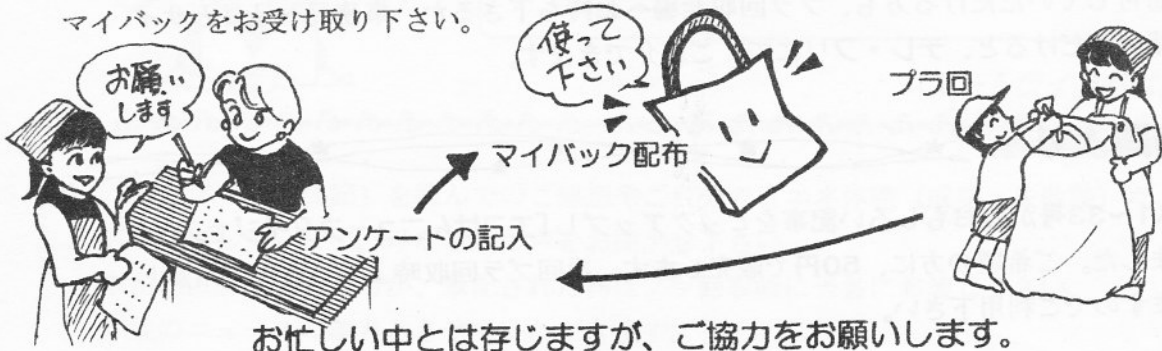 マイバックをお受け取り下さい。
お願い
します
使って
下さい
プラ回
マイバック配布
アンケートの記入
お忙しい中とは存じますが、ご協力をお願いします。